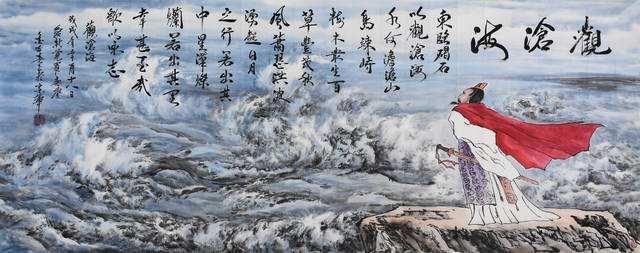 觀滄海
東臨碣石
以觀滄海
水何澹澹山
島竦峙
樹木叢生百
草豐茂秋
風蕭瑟洪波
涌起日月
之行若出其
中星漢燦
爛若出其里
幸甚至哉
歌以詠志
觀滄海